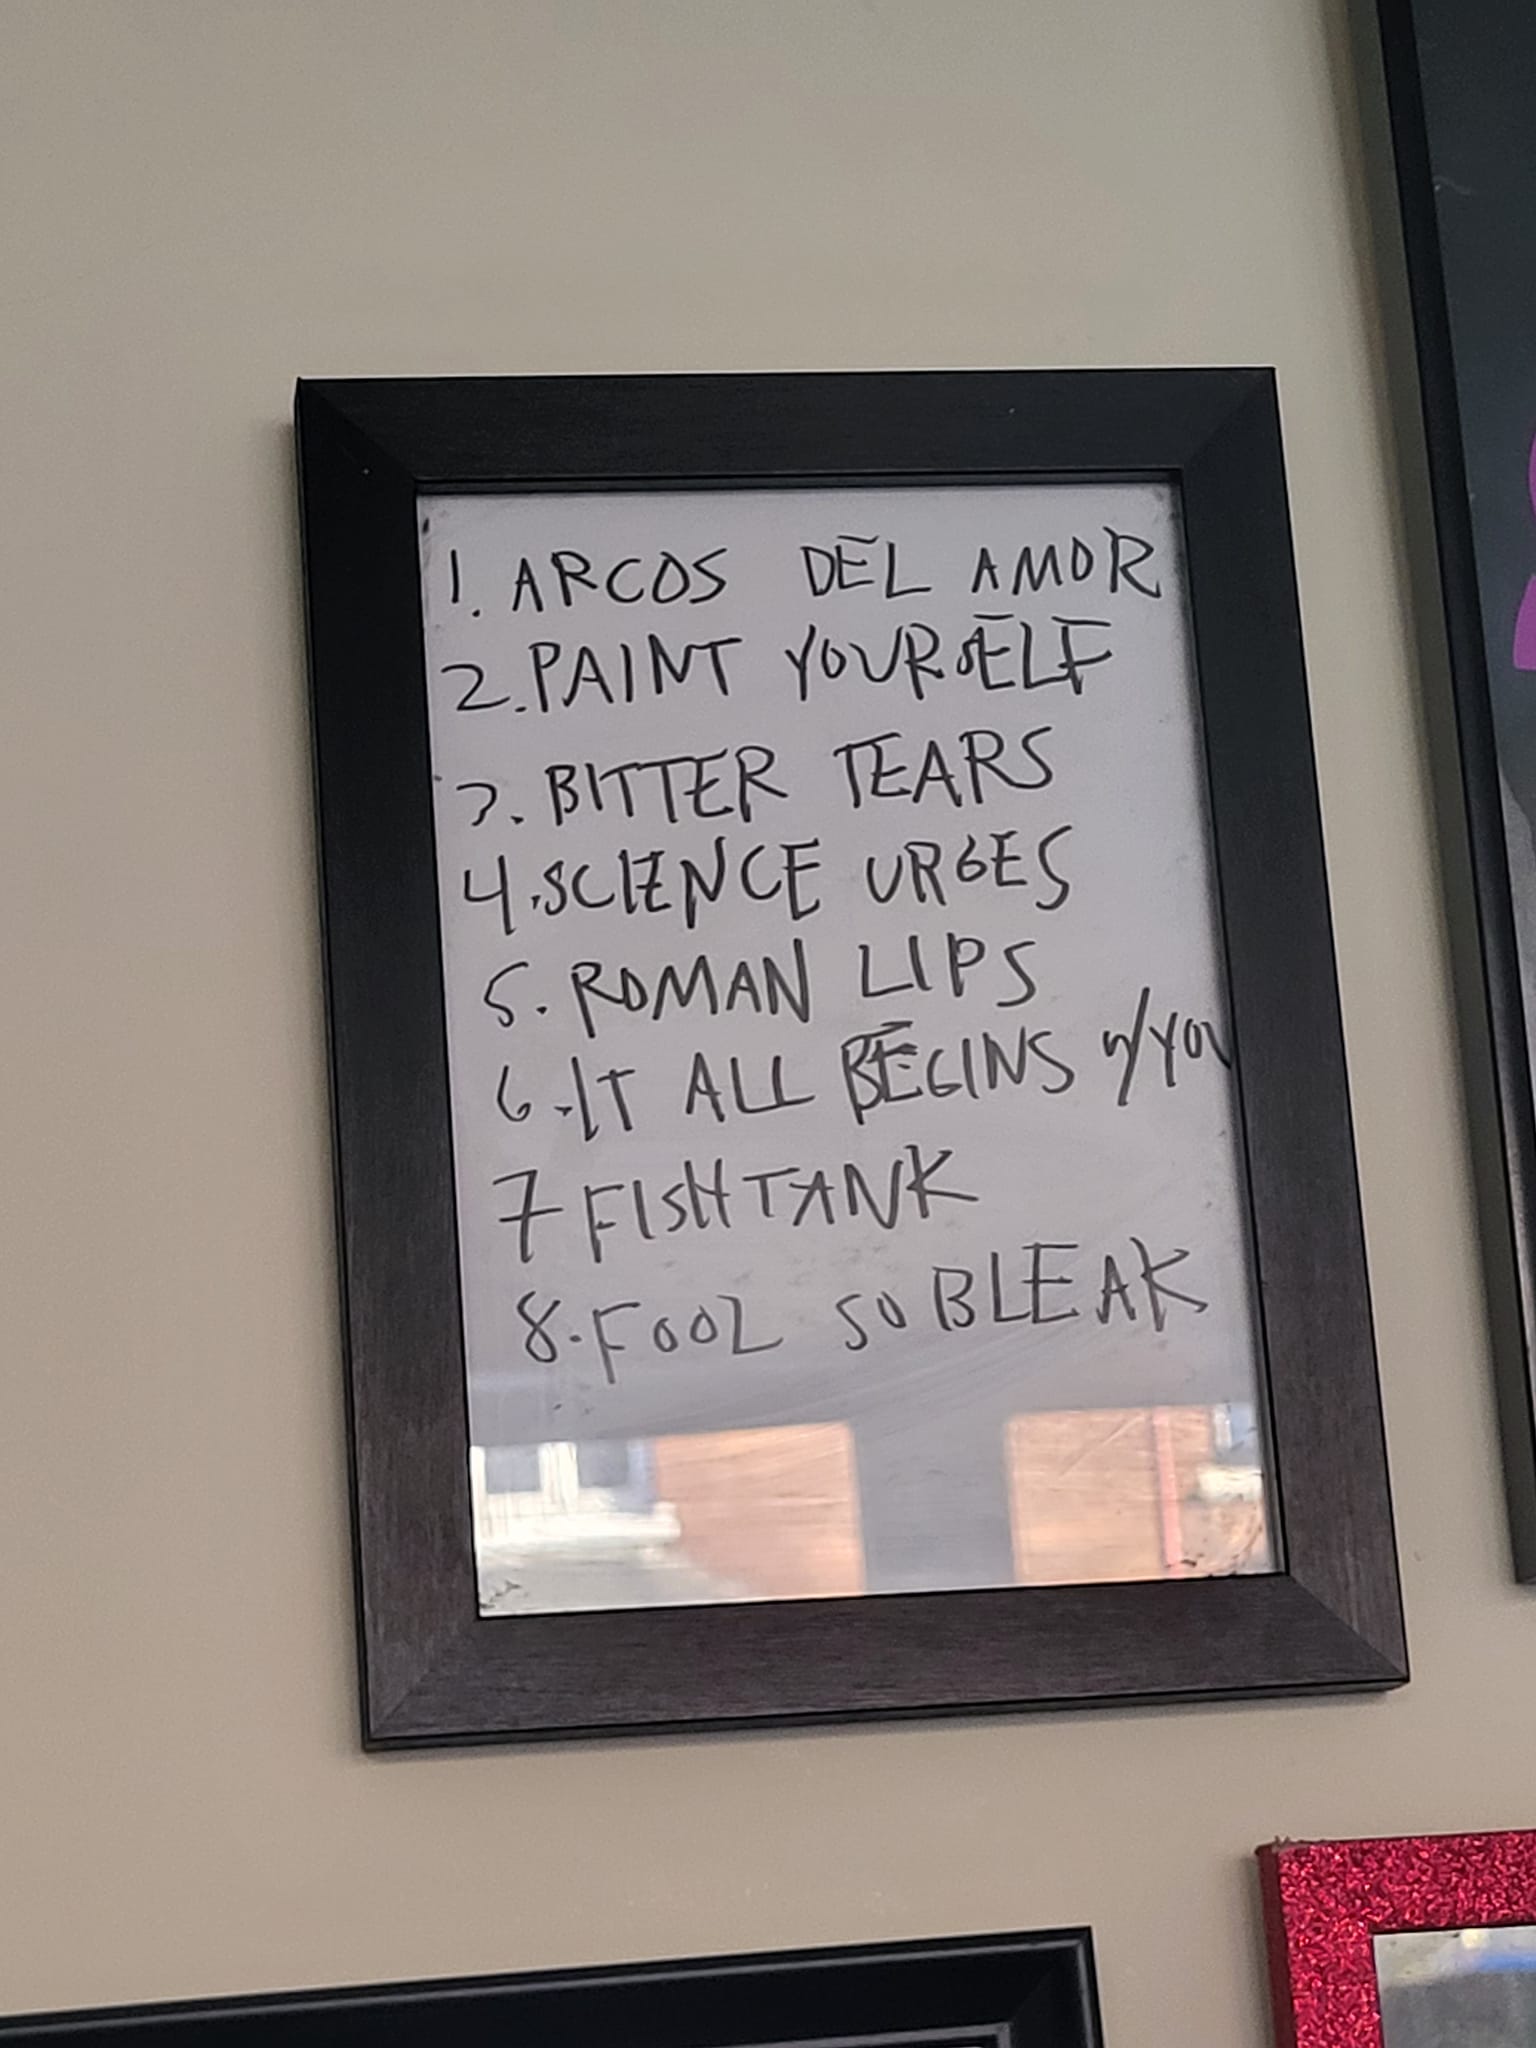 1. ARCOS DEL AMOR
2. PAINT YOURSELF
3. BITTER TEARS
4. SCIENCE URGES
5. ROMAN LIPS
6. IT ALL BEGINS w/YOU
7 FISHTANK
8. FOOL SO BLEAK